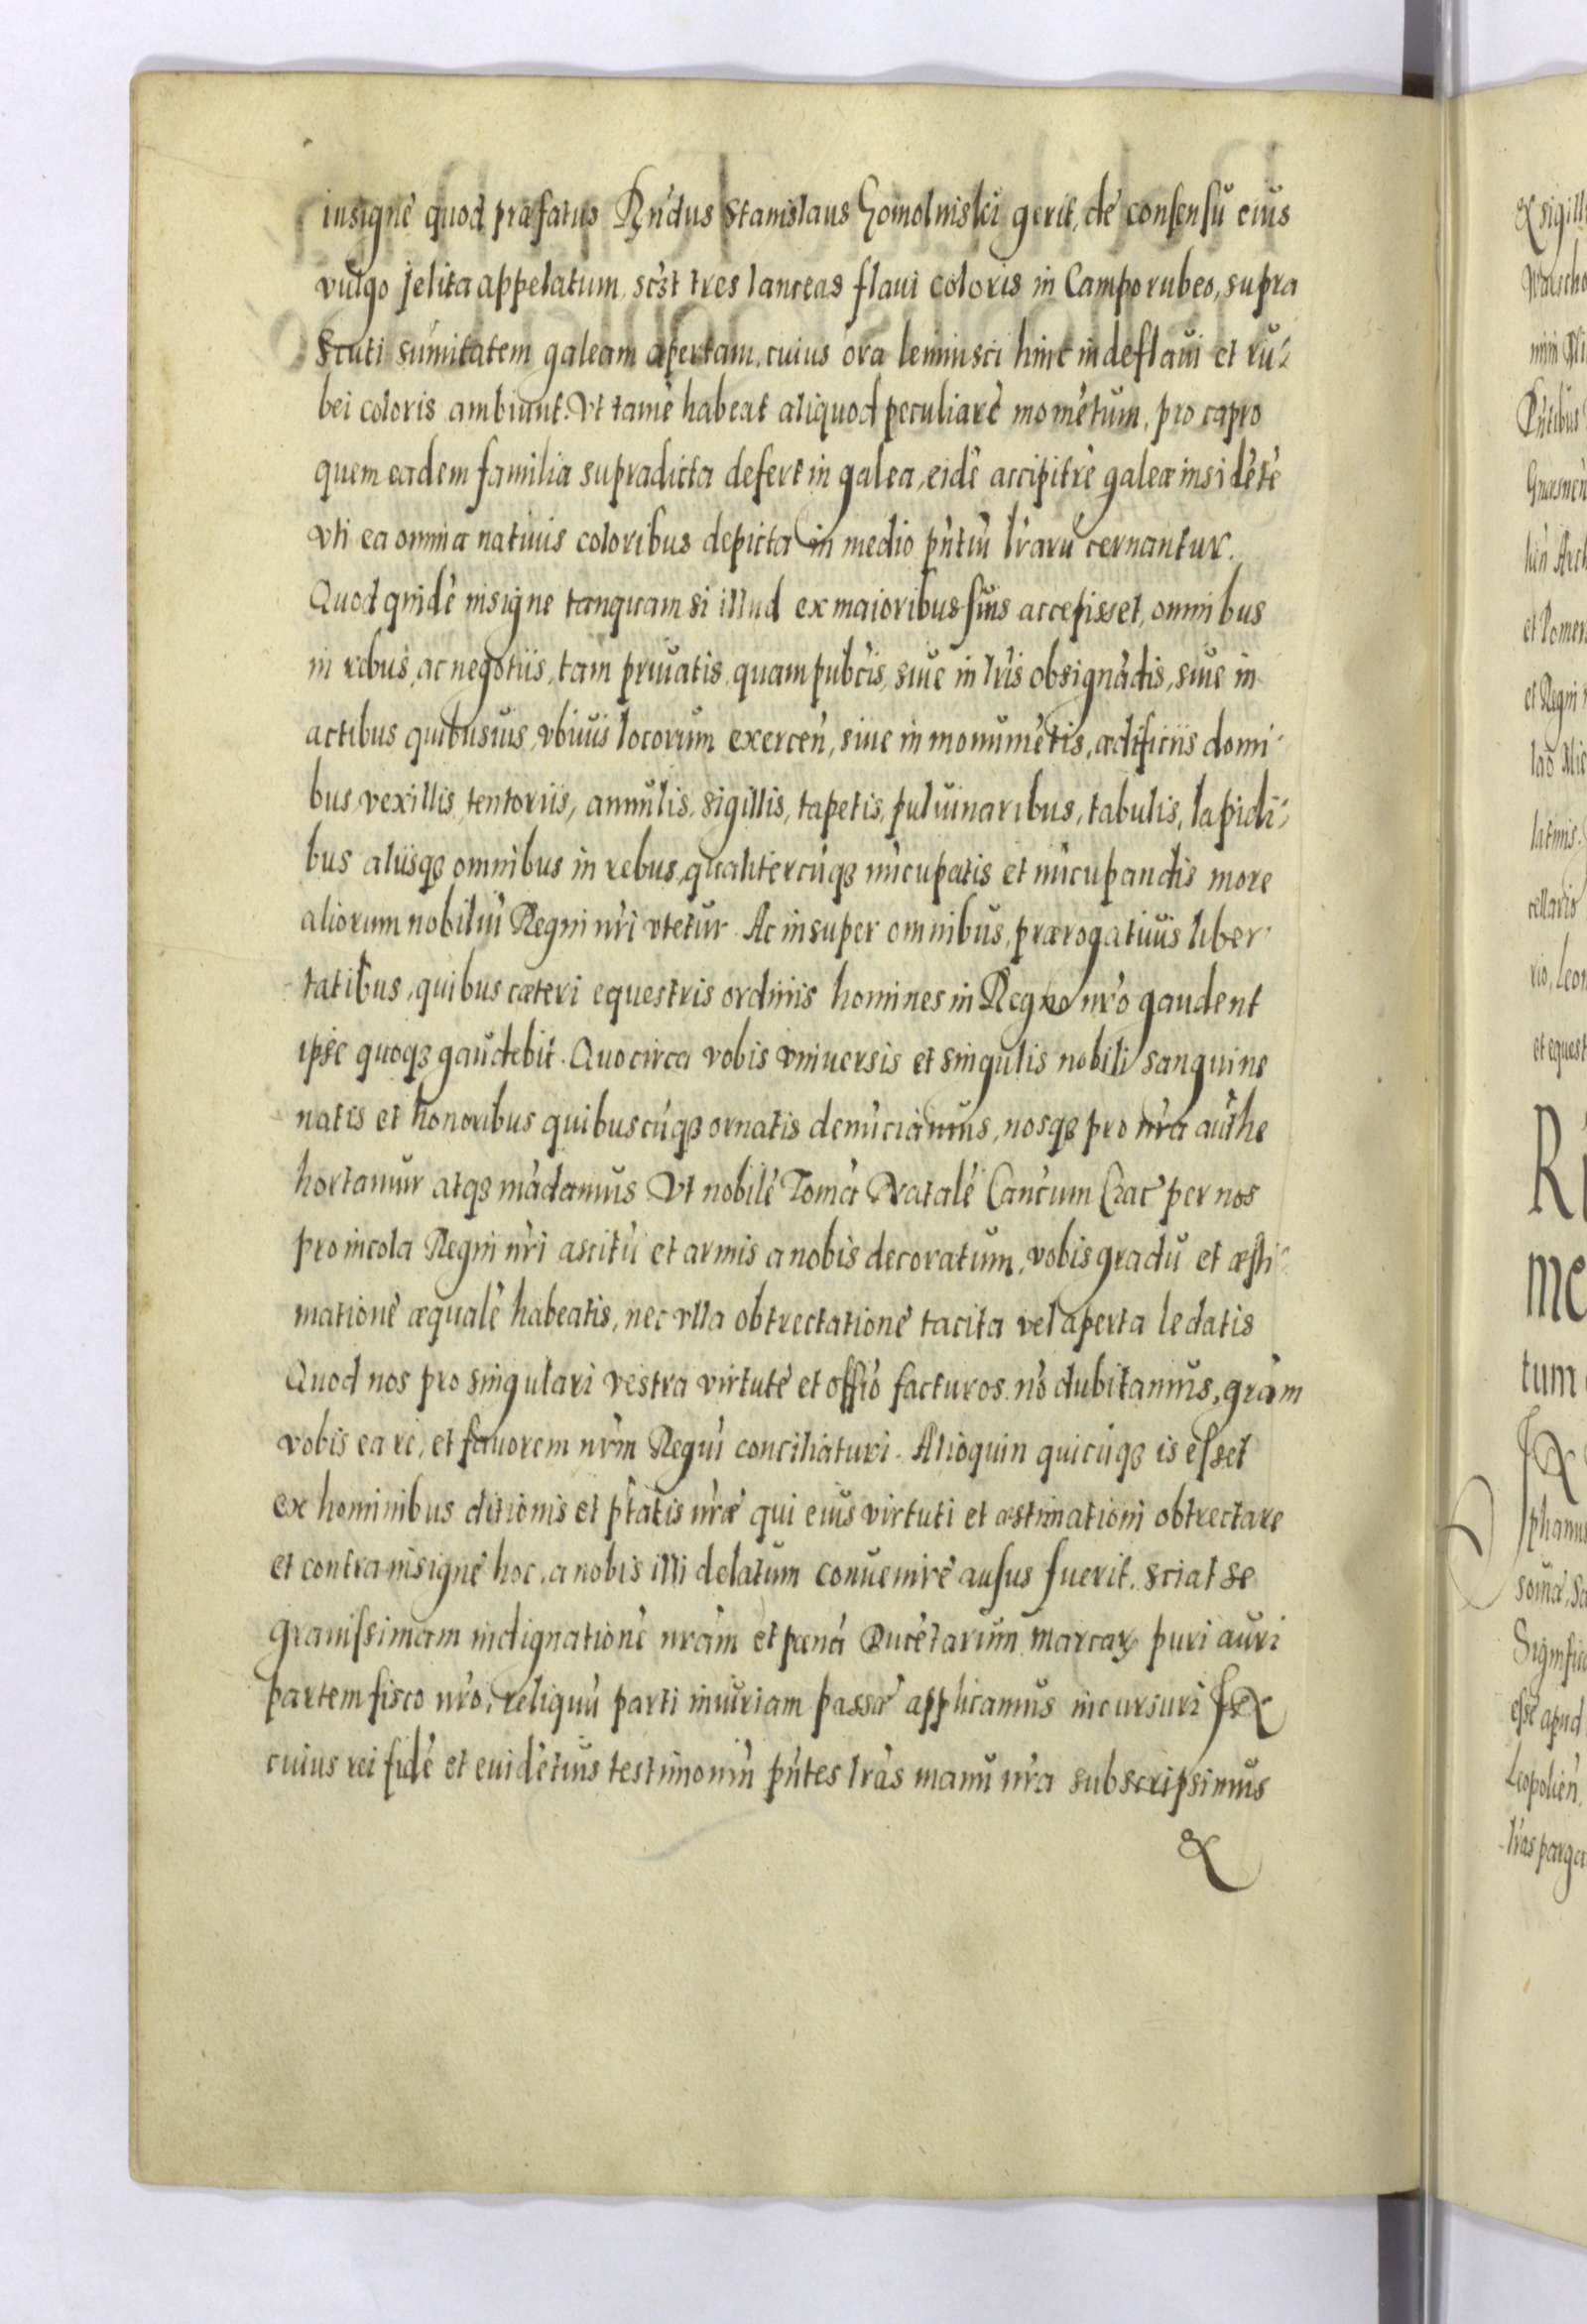 insignè quod præfatus Rñdus Stanislaus Gomolniski gerit, de consensu eius
vulgo Jelita appelatum, sc̃st tres lanceas flaui coloris in Campo rubeo, supra
scuti sum̃itatem galeam apertam, cuius ora lemnisci hinc inde flaui et ru-
bei coloris ambiunt. Vt tamẽ habeat aliquod peculiarè momẽtum, pro capro
quem eadem familia supradicta defert in galea, eidẽ accipitrẽ galeæ insidẽtẽ
vti ea omnia natiuis coloribus depicta in medio pñtiũ lr̃arũ cernantur.
Quod quidẽ insigne tanquam si illud ex maioribus suis accepisset, omnibus
in rebus, ac negotiis, tam priuatis, quam pubcis, siue in lr̃is obsignãdis, siue in
actibus quibusuis, vbiuis locorum exerceñ, siue in monumẽtis, ædificiis domi-
bus vexillis, tentoriis, annulis, sigillis, tapetis, puluinaribus, tabulis, lapidi-
bus aliisq3 omnibus in rebus, qualitercũq3 nũcupatis et nũcupandis more
aliorum nobiliũ Regni nr̃i vtetur. Ac insuper omnibus, prærogatiuis liber-
tatibus, quibus cæteri equestris ordinis homines in Regno nr̃o gaudent
ipse quoq3 gaudebit. Quocirca vobis vniuersis et singulis nobili sanguine
natis et honoribus quibuscũq3 ornatis denũciamus, nosq3 pro nr̃a authe
hortamur atq3 mãdamus Vt nobilẽ Tomã Natalẽ Cancum Crac̃ per nos
pro incola Regni nr̃i ascitũ et armis a nobis decoratum, vobis gradu et æsti-
mationẽ æqualẽ habeatis, nec vlla obtrectationè tacita vel aperta ledatis
Quod nos pro singulari vestra virtutè et offĩo facturos nõ dubitamus, grãm
vobis ea re, et fauorem nr̃m Regiũ conciliaturi. Alioquin quicũq3 is esset
ex hominibus ditionis et pt̃atis nr̃æ qui eius virtuti et æstimationi obtrectare
et contra insignè hoc, a nobis illi delatum conuenirè ausus fuerit, sciat se
grauissimam indignationẽ nrãm et pænã Ducẽtarum marcaꝝ puri auri
partem fisco nr̃o, reliquũ parti iniuriam passæ applicamus incursuri
cuius rei fidẽ et euidẽtius testimoniũ pñtes lr̃as manu nr̃a subscripsimus
&